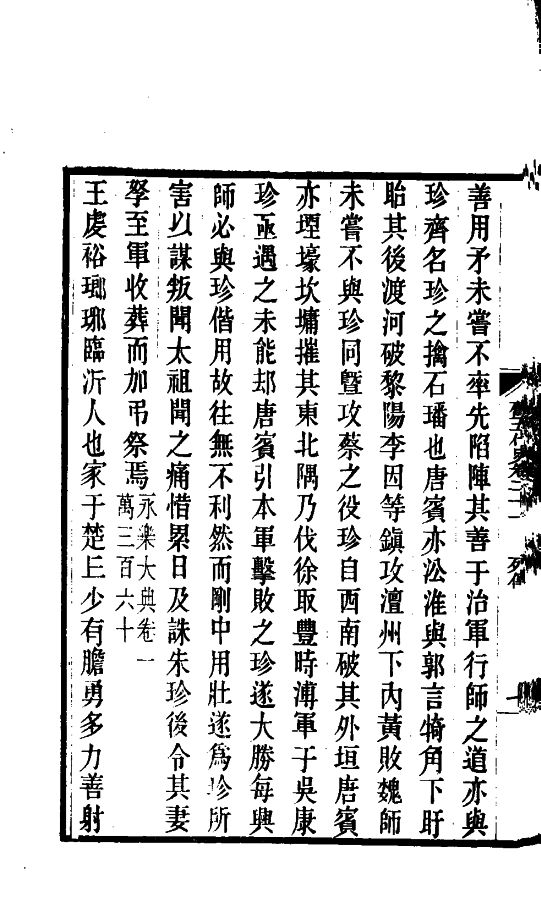 善用矛未嘗不率先陷陣其善于治軍行師之道亦與
珍齊名珍之擒石璠也唐賓亦㳂淮與郭言犄角下盱
眙其後渡河破黎陽李因等鎮攻澶州下內黃敗魏師
未嘗不與珍同曁攻蔡之役珍自西南破其外垣唐賓
亦堙壕坎墉摧其東北隅乃伐徐取豐時溥軍于吳康
珍亟遇之未能却唐賓引本軍擊敗之珍遂大勝每興
師必與珍偕用故往無不利然而剛中用壯遂爲珍所
害以謀叛聞太祖聞之痛惜累日及誅朱珍後令其妻
孥至軍收葬而加弔祭焉永樂大典卷一
萬三百六十
王虔裕瑯琊臨沂人也家于楚丘少有膽勇多力善射
舊五代史卷二十一 列傳